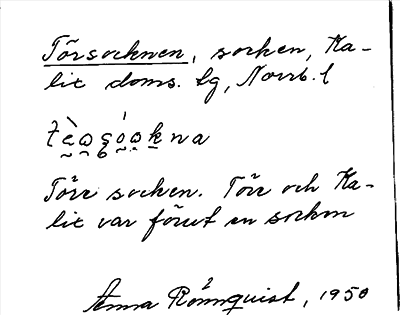 Törsocknen, socken, Ka-
lix doms. lg, Norrb. l
Töre socken. Töre och Ka-
lix var förut en socken
Anna Rönnquist, 1950